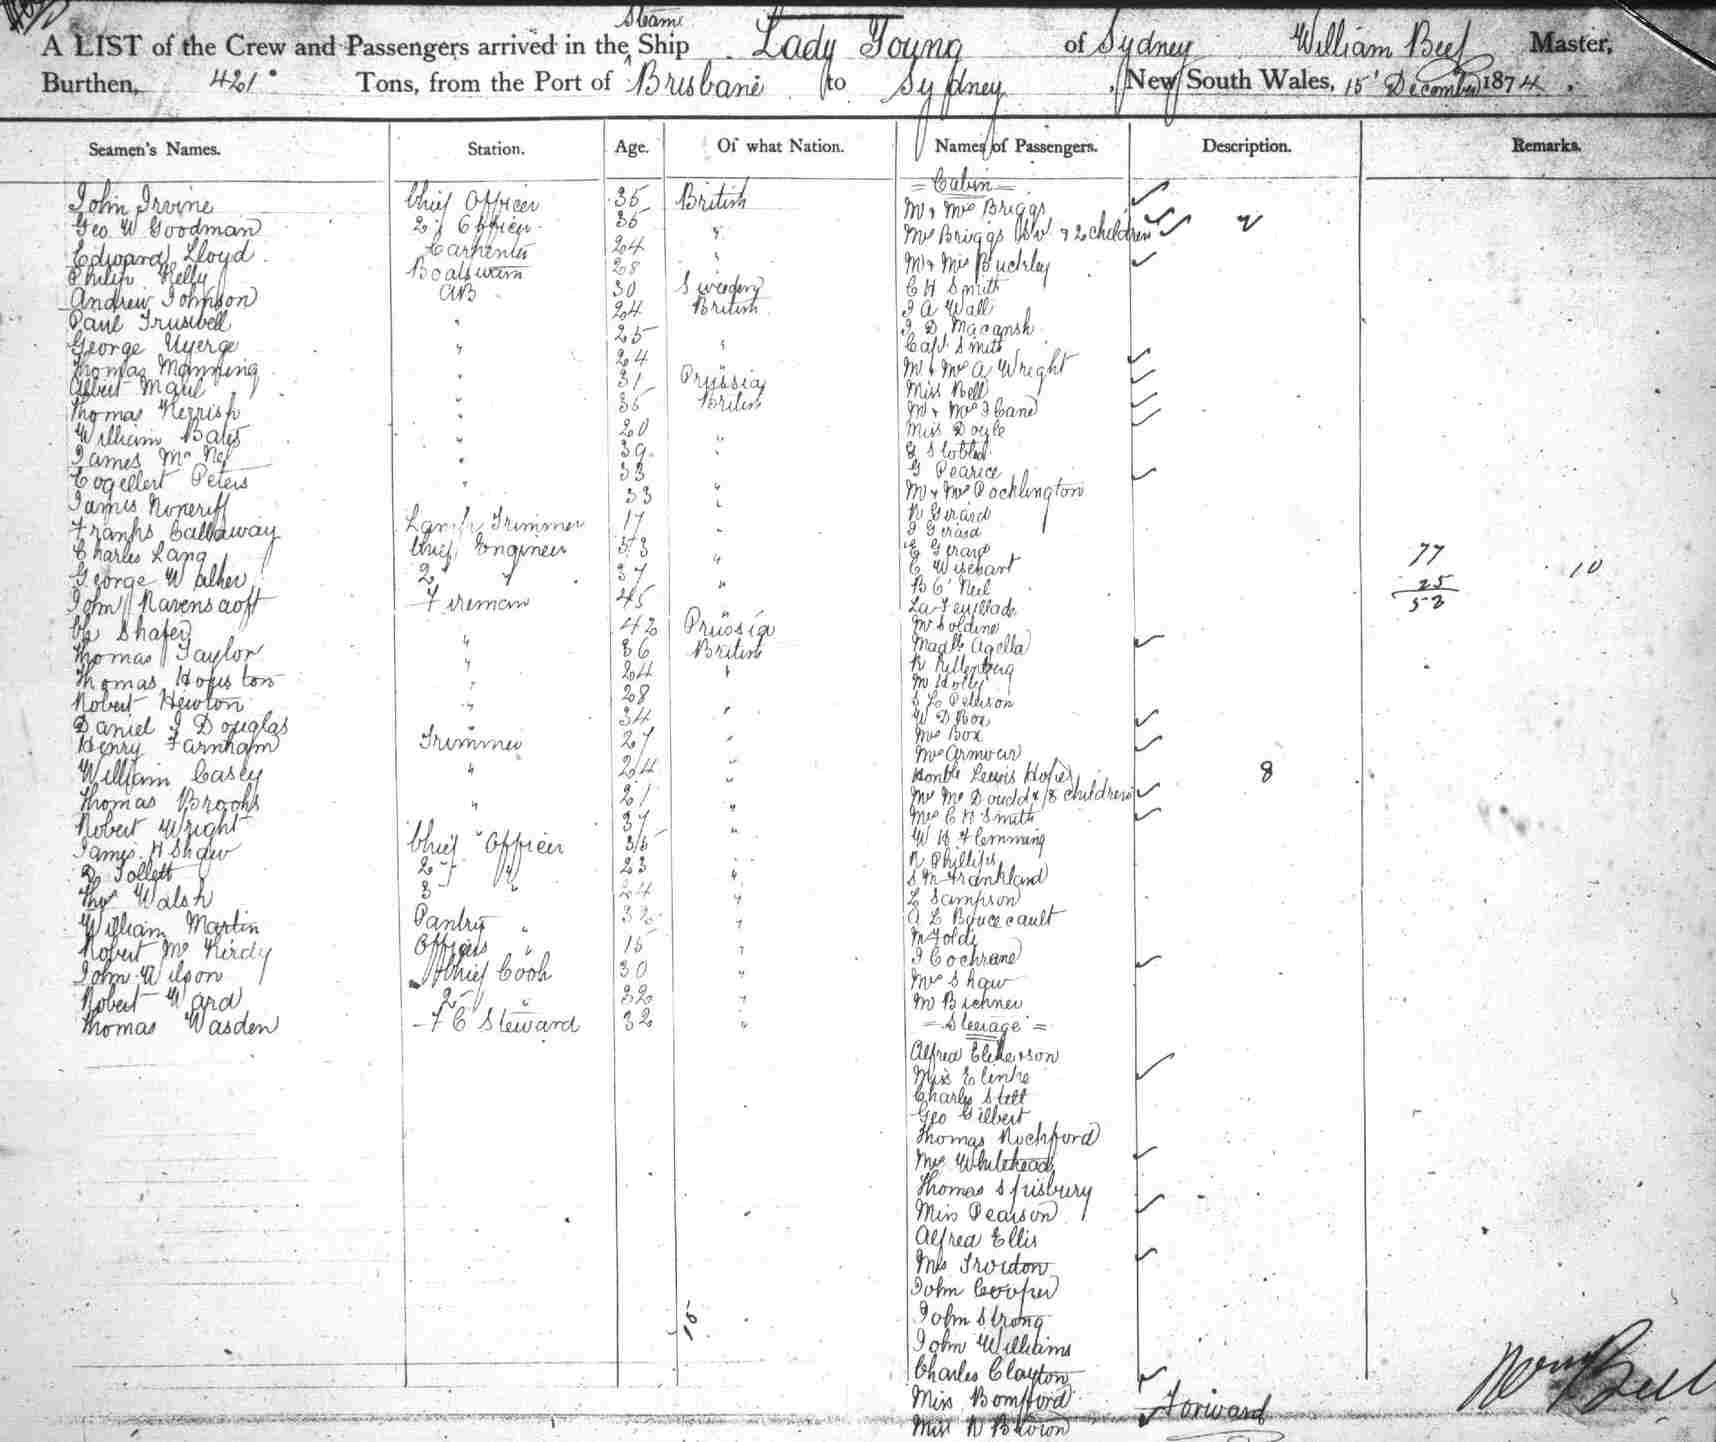 Steam
A LIST of the Crew and Passengers arrived in the Ship Lady Young of Sydney William Beel Master,
Burthen, 421 Tons, from the Port of Brisbane to Sydney, New South Wales, 15 December 1874.
Seamen's Names. Station. Age. Of what Nation. Names of Passengers. Description. Remarks.
John Irvine Chief Officer 35 British
Geo W Goodman 2d Officer 35 "
Edward Lloyd Carpenter 24 "
Philip Kelly Boatswain 28
Andrew Johnson AB 30 Sweden
Paul Truswell " 24 British
George " 25 "
Thomas Manning " 24
Albert " 31 Prussia
Thomas Kerrish " 35 British
William Bates " 20 "
James Mc " 39 "
Peters " 33
James " 33 "
Franks Callaway Lamp Trimmer 17 "
Charles Lang Chief Engineer 53 "
George Walker 2 " 37 "
John Ravenscroft Fireman 45 "
Shafer " 42 Prussia
Thomas Taylor " 36 British
Thomas Houston " 24 "
Robert Hewton " 28
Daniel J Douglas " 34 "
Henry Farnham Trimmer 27 "
William Casey " 24 "
Thomas Brooks " 21 "
Robert Wright 37 "
James H Shaw Chief Officer 35
D Tollett 2 " 23 "
Thos Walsh 3 " 24 "
William Martin Pantry " 32 "
Robert Mc Kirdy Officers " 15 "
John Wilson Chief Cook 30 "
Robert Ward 2 " 32 "
Thomas Wasden F C Steward 32 "
= Cabin =
Mr & Mrs Briggs
Mrs Briggs & 2 children 2
Mr & Mrs Buckley
C H Smith
J A Wall
J D Macansh
Capt Smith
Mr & Mrs A Wright
Miss Bell
Mr & Mrs J Cane
Miss Doyle
G Pearice
Mr & Mrs Pocklington
R Girard
J Girard
E Girard
E Wischart
B O'Neil
La Feuillade
Mr Soldene
Madlle Agella
S L Peterson
W D Box
Mrs Box
Mrs Armour
Honble Lewis Hope
Mrs Mc Doudd & 8 children 8
Mrs C H Smith
W H Flemming
R Phillips
S M Frankland
L Sampson
A L Boucecault
J Cochrane
Mrs Shaw
Mr Bichner
= Steerage =
Alfred
Miss
Charles Stett
Geo Gilbert
Thomas Rochford
Mrs Whitehead
Thomas Spisbury
Miss Pearson
Alfred Ellis
Mrs Troidon
John Cooper
John Strong
John Williams
Charles Clayton
Miss Bomfford
Miss R Brown
Forward
77
25
52
10
15
Wm Beel